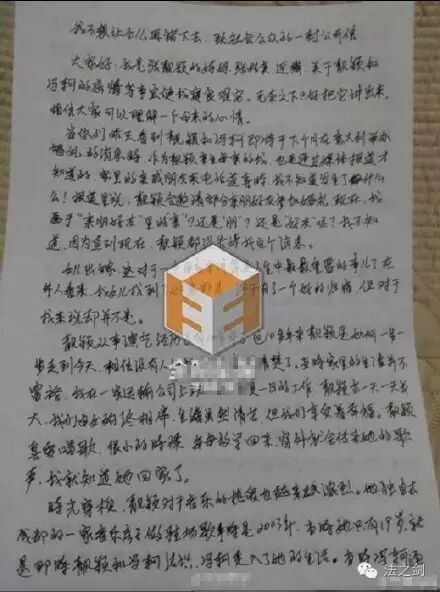 我不想让女儿再错下去，致社会公众的一封公开信
大家好：我是张靓颖的妈妈张桂英，近期，关于靓颖和
冯轲的感情等事宜使我寝食难安。无奈之下只好把它讲出来，
相信大家可以理解一个母亲的心情。
当你们昨天看到靓颖和冯轲即将于下个月在意大利举办
婚礼的消息时，作为靓颖亲生母亲的我，也是通过媒体报道才
知道的，家里的亲戚朋友来电话道喜时，我不知道发生了什
么！报道里说，靓颖会邀请部分亲朋好友参加婚礼，现在，我
属于“亲朋好友”里的“亲”？还是“朋”？还是“好友”呢？我不知
道，因为直到现在，靓颖都没告诉我这个消息。
女儿出嫁，这对于一个 生中最最重要的事儿了，在
外人看来，我女儿找到了 有了一个好的归宿，但对于
我来说却并不是。
靓颖从事演艺 10多年来靓颖是如何一步一
步走到今天，相信没有人 清楚了，当时家里的生活并不
富裕，我在一家运输公司上 复一日的工作，靓颖也一天一天长
大，我们母女相依相伴，生活虽然清苦，但我们享受着幸福。靓颖
喜爱唱歌，很小的时候，每每放学回来，窗外就会传来她的歌
声，我就知道她回家了。
时光穿梭，靓颖对于音乐的热爱也越来越浓烈。她独自去
成都的一家音乐房子做驻场歌手时是2003年，当时她只有19岁，就
是那时靓颖和冯轲结识，冯轲走入了她的生活。当时冯轲
法之剑